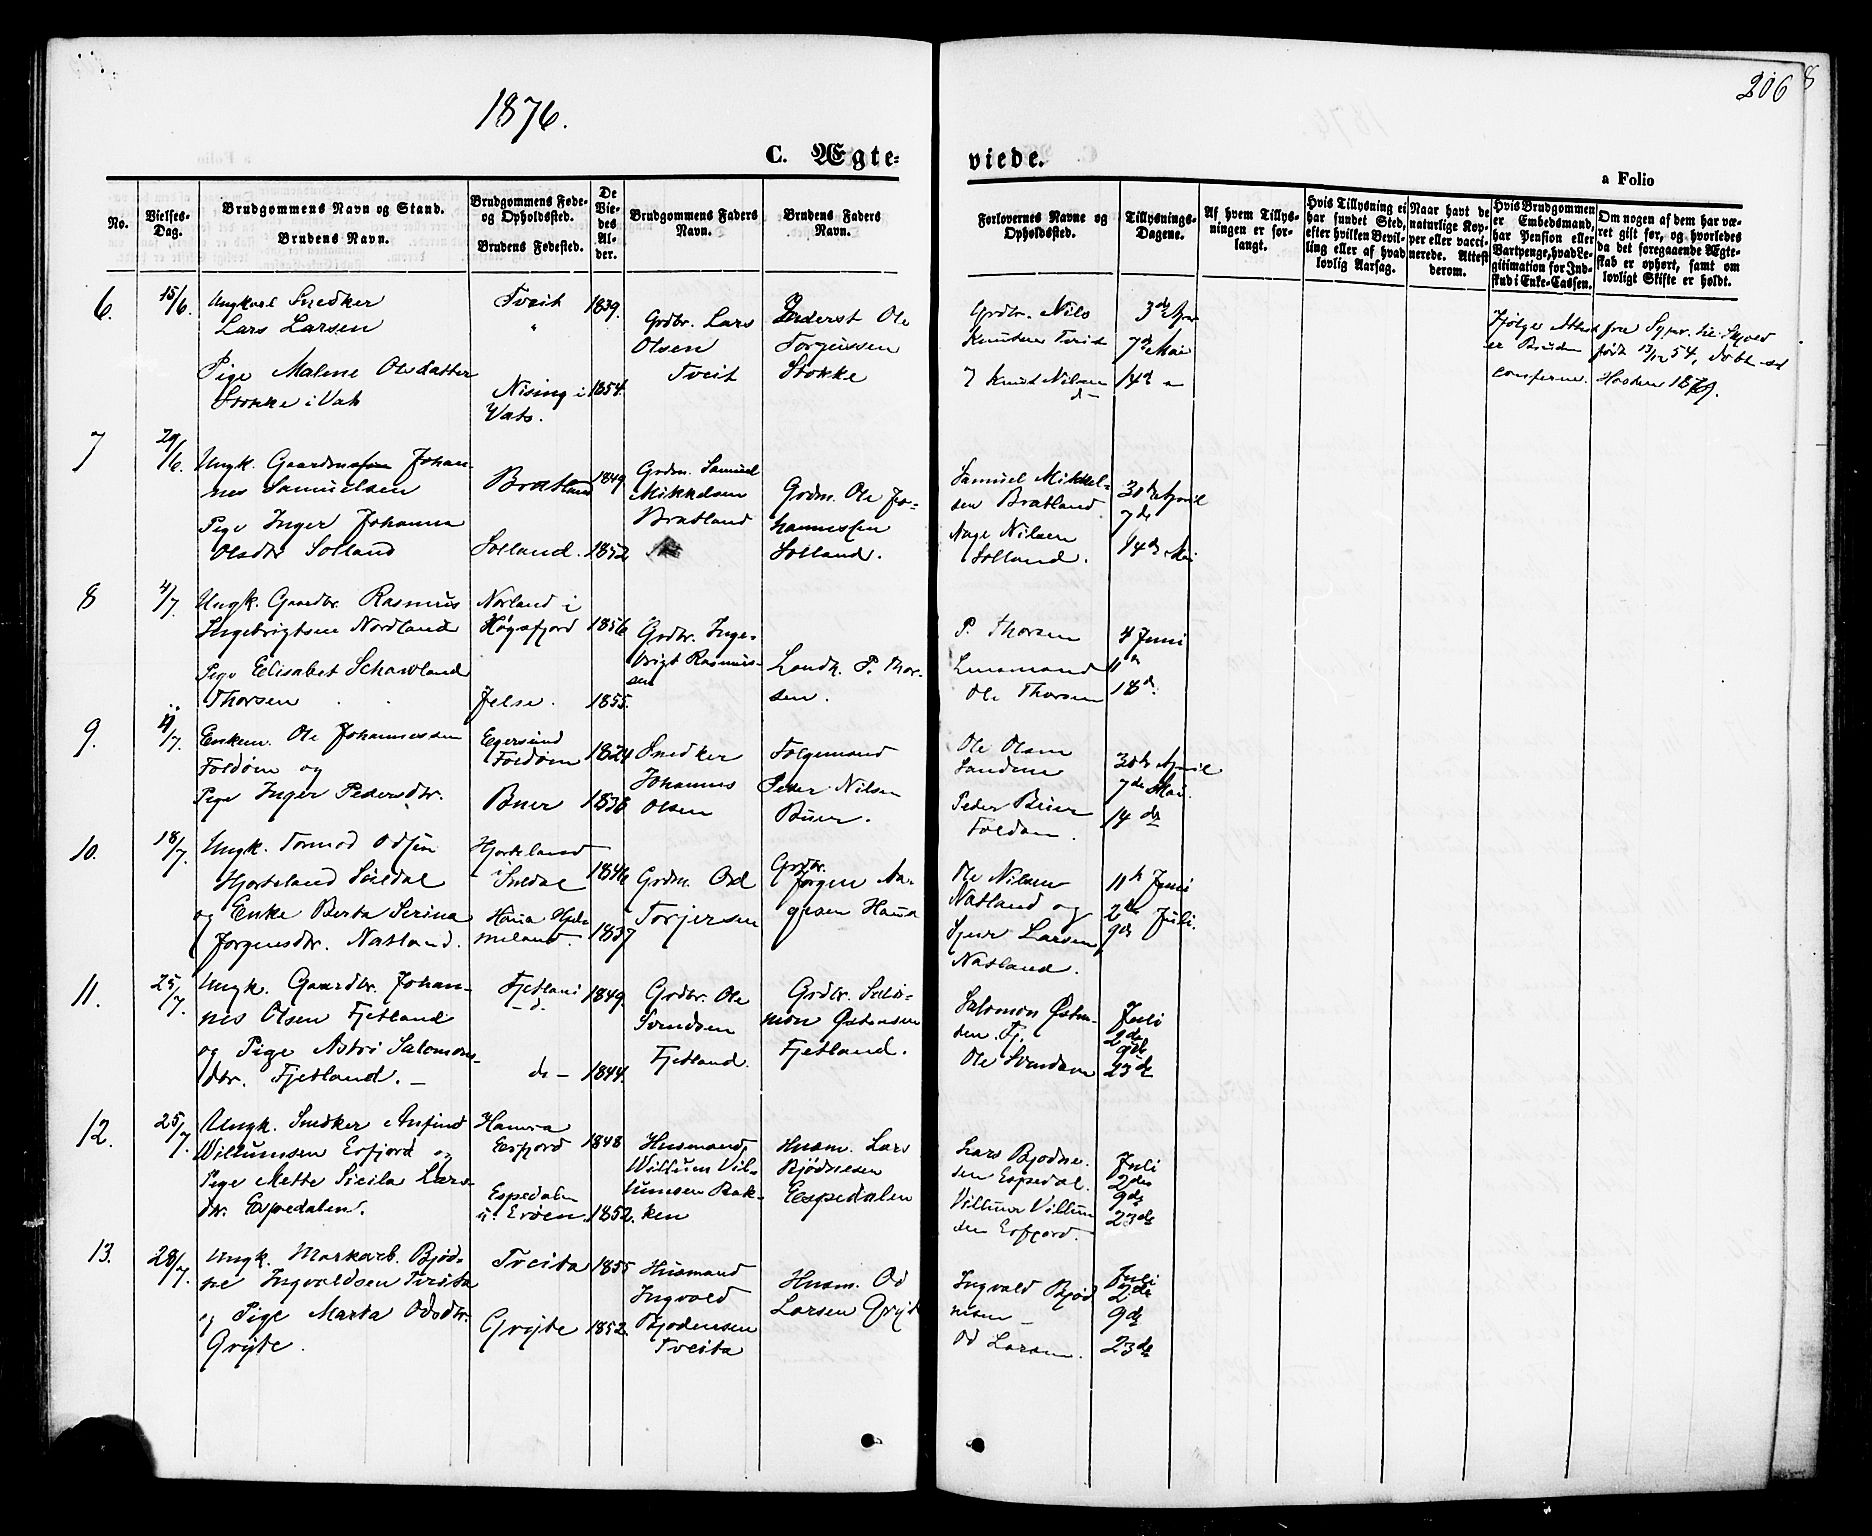 206
8
1876.
C. Ægte-
viede.
a Folio
No.
Vielses-
Dag.
Brudgommens Navn og Stand.
Brudens Navn.
Brudgommens Føde-
og Opholdssted.
Brudens Fødested.
De
Vie-
des
Al-
der.
Brudgommens Faders
Navn.
Brudens Faders
Navn.
Forlovernes Navne og
Opholdssted.
Tillysnings-
Dagene.
Af hvem Tillys-
ningen er for-
langt.
Hvis Tillysning ei
har fundet Sted,
efter hvilken Bevil-
ling eller af hvad
lovlig Aarsag.
Naar havt de
naturlige Kop-
per eller vacci-
nerede. Attest
derom.
Hvis Brudgommen
er Embedsmand,
har Pension eller
Vartpenge, hvad Le-
gitimation for Ind-
skud i Enke-Cassen.
Om nogen af dem har væ-
ret gift før, og hvorledes
da det foregaaende Ægte-
skab er ophørt, samt om
lovligt Skifte er holdt.
6.
15/6.
Ungkarl Snedker
Lars Larsen
Pige Malene Olsdatter
Stokke i Vats
Tveit
"
Nising i
Vats.
1839.
1854.
Grdbr. Lars
Olsen
Tveit
Inderst Ole
Torgersen
Stokke
Grdbr. Nils
Knutsen Tveit
Knud Nilsen
d -
3de Apr
7de Mai
14de "
Ifølge Attest fra
er Bruden født 54, døbt
confirm. Høsten 1879.
7
29/6.
Ungk. Gaardmand Johan-
nes Samuelsen
Pige Inger Johanna
Olsdtr Solland
Bratland
Solland.
1849
1852
Grdm. Samuel
Mikkelsen
Bratland
Grdm. Ole Jo-
hannessen
Solland.
Samuel Mikkel-
sen Bratland.
Aage Nilsen
Solland.
30te April
7de
14de Mai
8
4/7.
Ungk. Gaardbr. Rasmus
Ingebrigtsen Nordland
Pige Elisabet Schauland
Thorsen
Norland i
Høgsfjord
Jelse.
1856
1855.
Grdbr. Inge-
brigt Rasmus-
sen
Landh. P. Thor-
sen.
P. Thorsen
Lensmand
Ole Thorsen
4 Juni
11te
18de.
9.
11/7.
Enkem. Ole Johannessen
Foldøen og
Pige Inger Pedersdtr.
Egersund
Foldøen
Buer
1824
1838
Snedker
Johannes
Olsen
Følgemand
Peder Nilsen
Buer.
Ole Olsen
Sandene
Peder Buer
Foldøen.
30te April
7de Mai.
14 de
10.
18/7.
Ungk. Tormod Odsen
Hjorteland Suldal
og Enke Berta Serina
Jørgensdtr. Natland.
Hjorteland
i Suldal
Haua Hjel-
meland.
1846
1837
Grdm. Od
Torjersen
Grdbr.
Jørgen Aa-
gesen Haua
Ole Nilsen
Natland og
Sjur Larsen
Natland.
11te Juni
2de Juli.
9de
11.
25/7.
Ungk. Gaardbr. Johan-
nes Olsen Fjetland
og Pige Astri Salomons-
dtr. Fjetland. -
Fjetland
- d.
do -
1849.
1844.
Grdbr. Ole
Svendsen
Fjetland.
Grdbr. Salo-
mon Østensen
Fjetland.
Salomon Østen-
sen. Fj.
Ole Svendsen
Juli
2de
9de
23de
12.
25/7.
Ungk. Snedker Anfind
Willumsen Erfjord og
Pige Mette Sicilia Lars-
dtr. Espedalen.
Hamra
Erfjord
Espedalen
i Erøen.
1848
1852.
Husmand,
Willum Vil-
lumsen Bak-
ken
Husm. Lars
Bjødnesen
Espedalen
Lars Bjødne-
sen Espedal.
Villum Villum-
sen Erfjord.
Juli
2de
9de
23de
13.
28/7.
Ungk. Markarb. Bjød-
ne Ingvaldsen Tveita
og Pige Marta Odsdtr.
Grjte.
Tveita
Grjte
1855
1852.
Husmand
Ingvald
Bjødnesen
Tveita
Husm. Od
Larsen Grjte
Ingvald Bjød
nesen -
Od Larsen.
Juli
2de
9de
23de